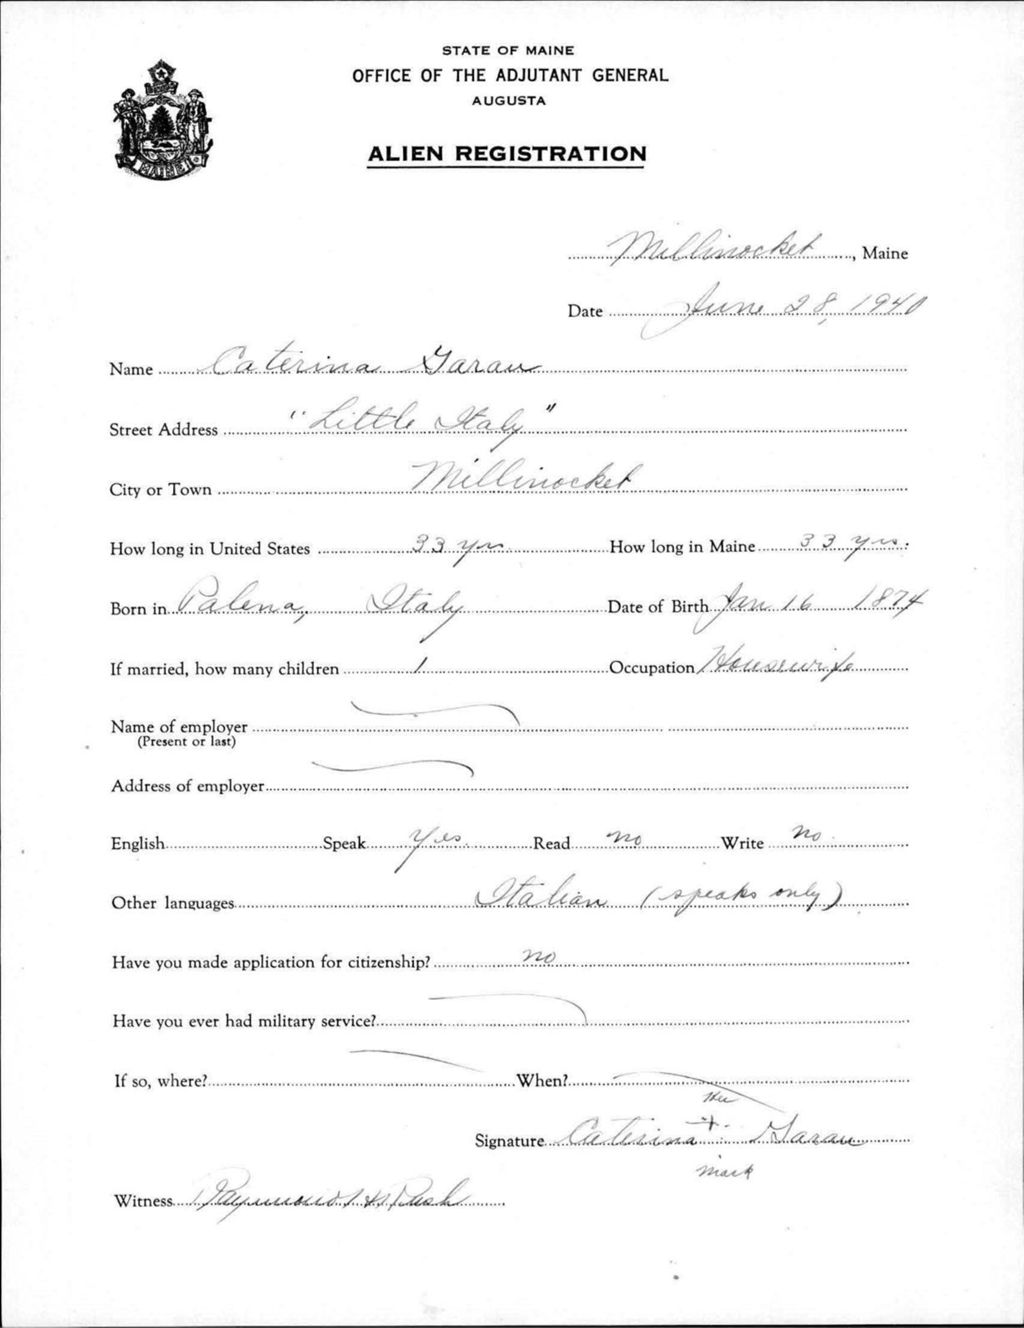 STATE OF MAINE
OFFICE OF THE ADJUTANT GENERAL
AUGUSTA
ALIEN REGISTRATION
Millinocket, Maine
Date June 28, 1940
Name Caterina Garau
Street Address "Little Italy"
City or Town Millinocket
How long in United States 33 yrs How long in Maine 33 yrs.
Born in Palena, Italy Date of Birth Jan 16 1874
If married, how many children 1 Occupation Housewife
Name of employer
(Present or last)
Address of employer
English Speak Yes Read no Write no
Other languages Italian (speaks only)
Have you made application for citizenship? no
Have you ever had military service?
If so, where? When?
her
Signature Caterina + Garau
mark
Witness Raymond H. Rush
MAINE